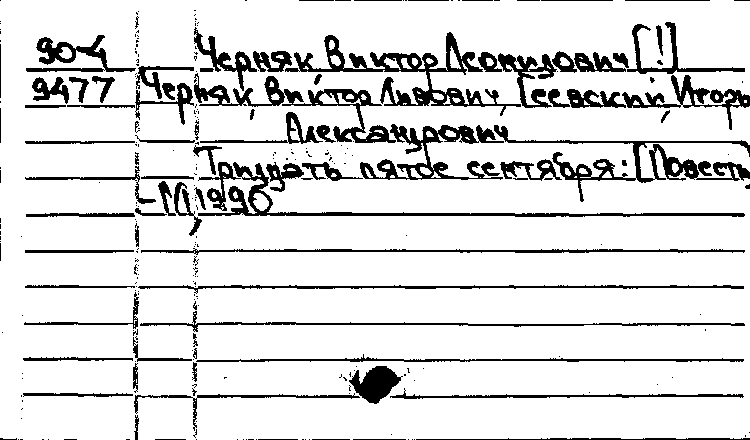 90-4 Черняк, Виктор Леонидович [!]
9477 Черняк, Виктор Львович, Геевский, Игорь
Александрович
Тридцать пятое сентября: [Повесть]
-М, 1990